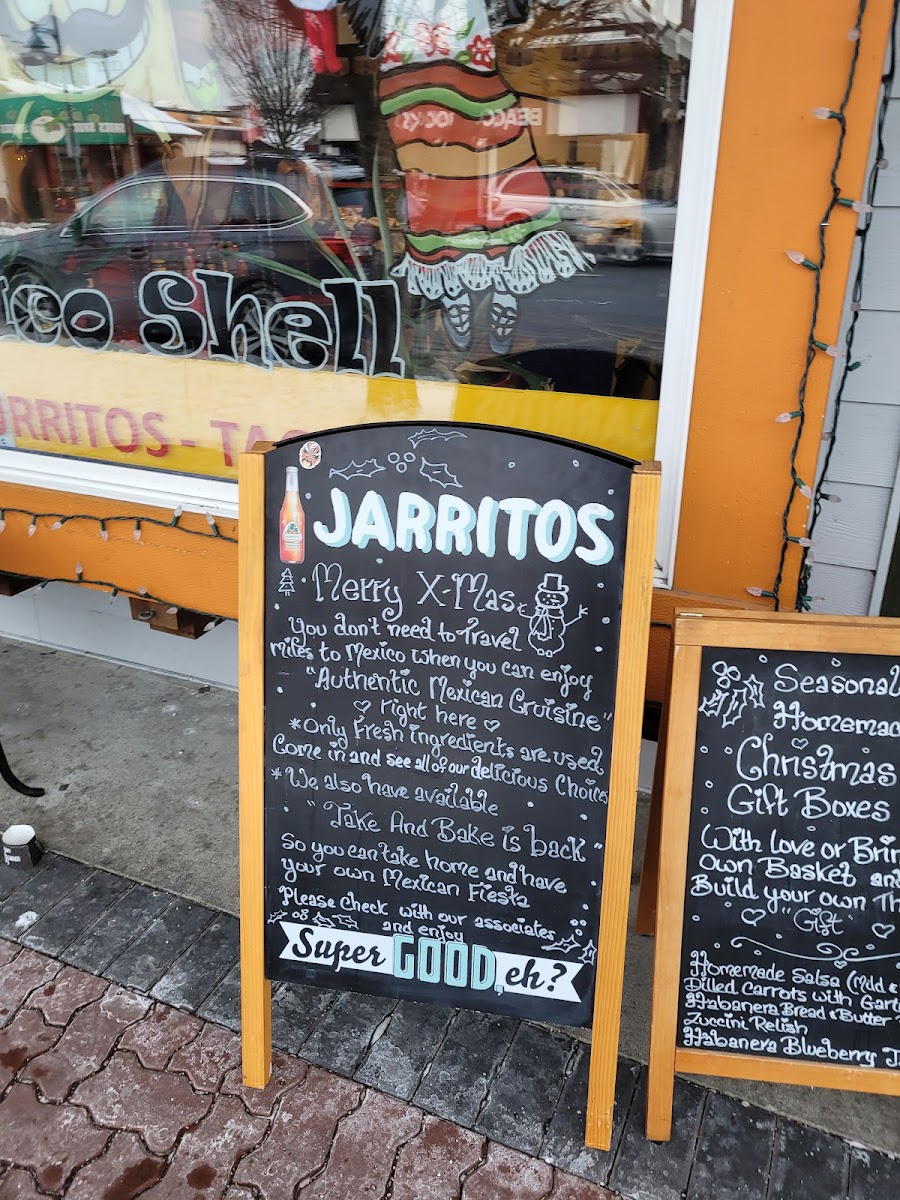 co Shell
URRITOS - TA
JARRITOS
Merry X-Mas
You don't need to Travel
miles to Mexico when you can enjoy
"Authentic Mexican Cruisine"
right here
*Only fresh ingredients are used
Come in and see all of our delicious Choices
*We also have available
"Take And Bake is back"
So you can take home and have
your own Mexican Fiesta
Please Check with our associates
and enjoy
Super GOOD, eh?
Seasonal
Homemad
Christmas
Gift Boxes
With love or Brin
Own Basket and
Build your own Th
"Gift"
Homemade Salsa (Mild &
Dilled Carrots with Garl
Habanera Bread & Butter
Zuccini Relish
Habanera Blueberry J